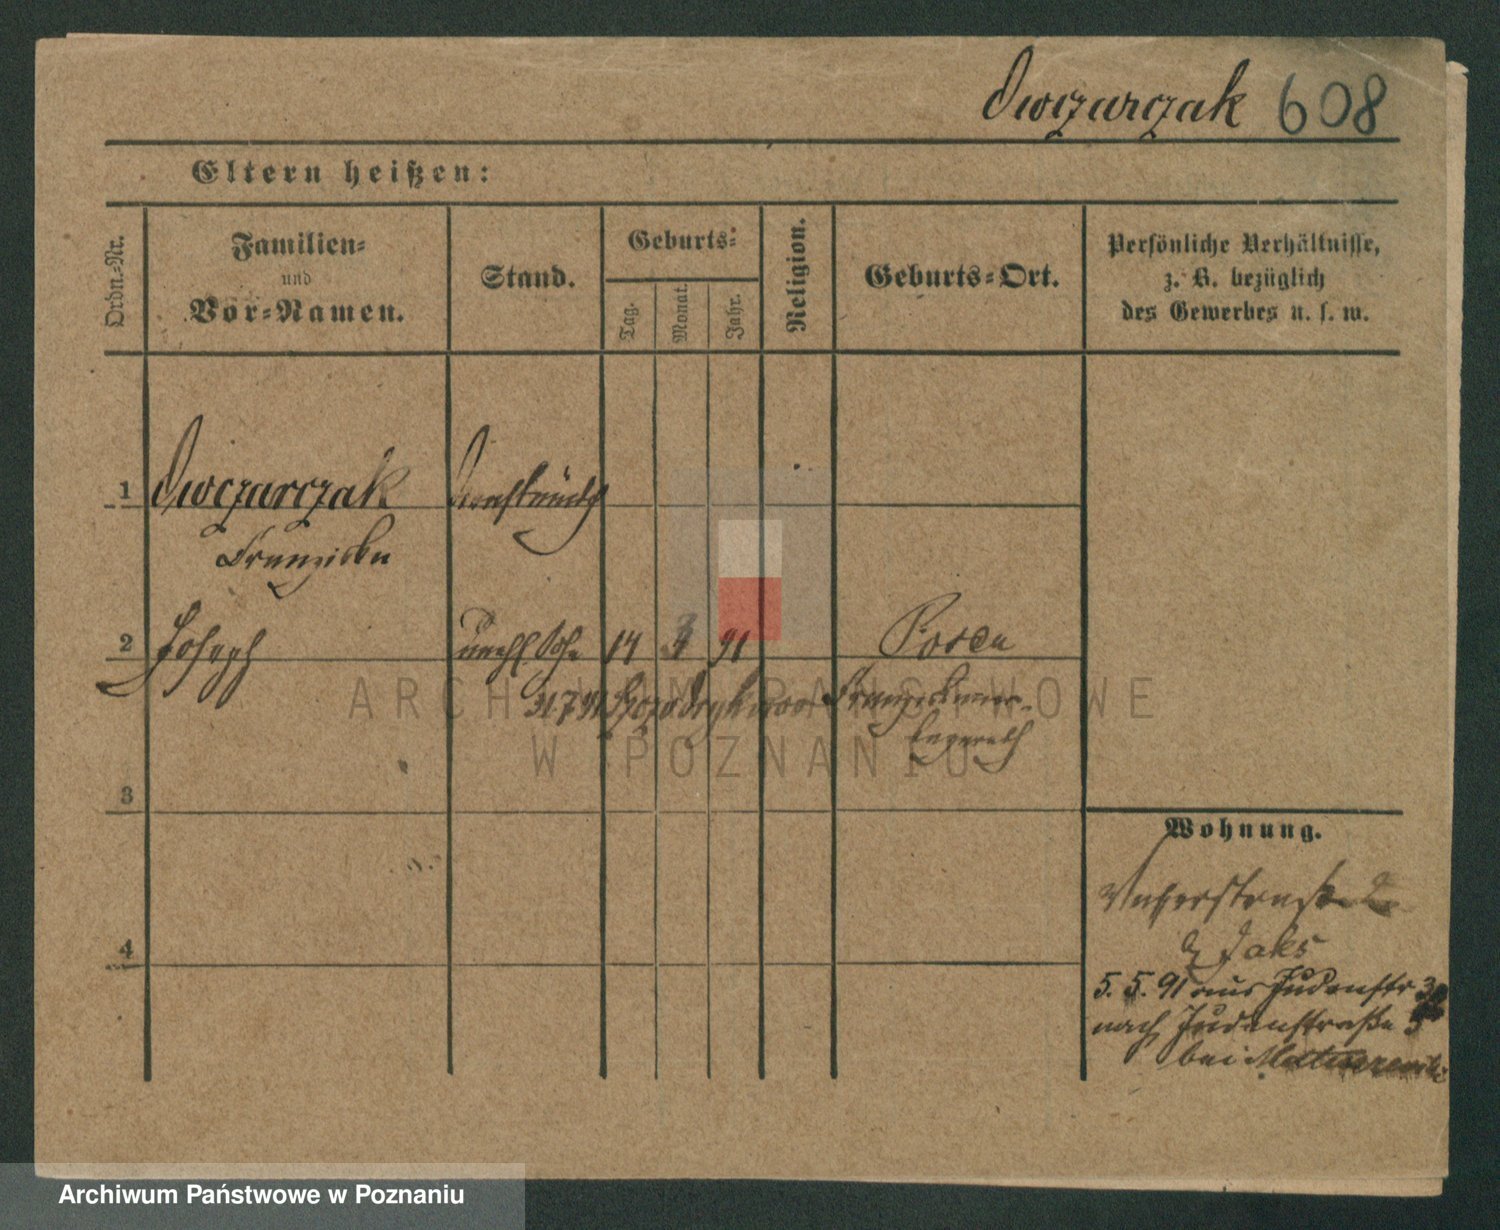 Owczarczak 608
Eltern heißen:
Ordn.-Nr.
Familien-
und
Vor-Namen.
Stand.
Geburts-
Tag.
Monat.
Jahr.
Religion.
Geburts-Ort.
Persönliche Verhältnisse,
z. B. bezüglich
des Gewerbes u. s. w.
1 Owczarczak
Franziska
2 Joseph 14 4 91 Posen
31 7 91 Franziskaner-
Lazareth
3
4
Wohnung.
Jaks
5. 5. 91 aus Judenstr
nach Judenstraße 5
bei
ARCHIWUM PAŃSTWOWE
W POZNANIU
Archiwum Państwowe w Poznaniu